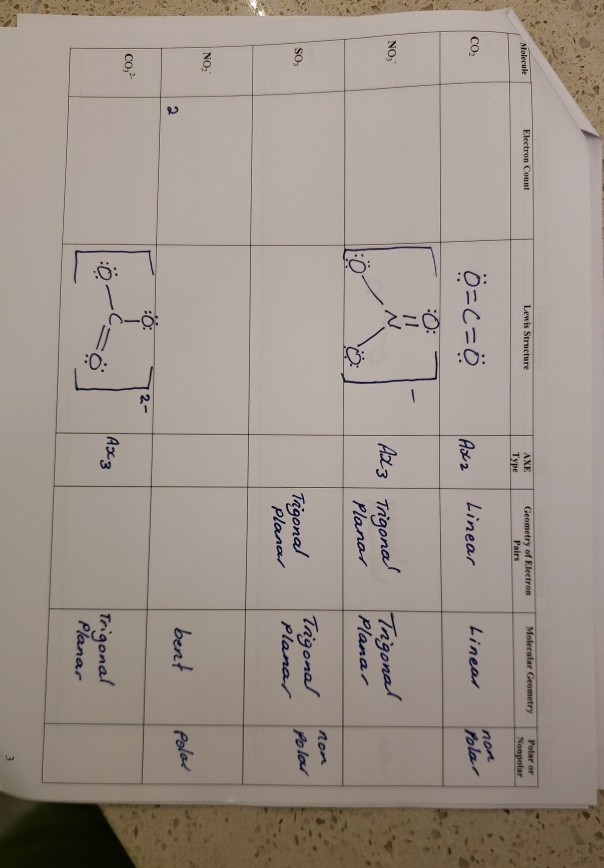 Molecule
Electron Count
Lewis Structure
AXE
Type
Geometry of Electron
Pairs
Molecular Geometry
Polar or
Nonpolar
CO₂
:Ö=C=Ö:
Ax2
Linear
Linear
non
polar
NO₃⁻
:Ö:
||
N
:Ö:
:Ö:
−
Ax3
Trigonal
Planar
Trigonal
Planar
SO₃
Trigonal
Planar
Trigonal
Planar
non
polar
NO₂⁻
2
bent
polar
CO₃²⁻
:Ö:
|
:Ö−C=Ö:
2−
Ax3
Trigonal
Planar
3